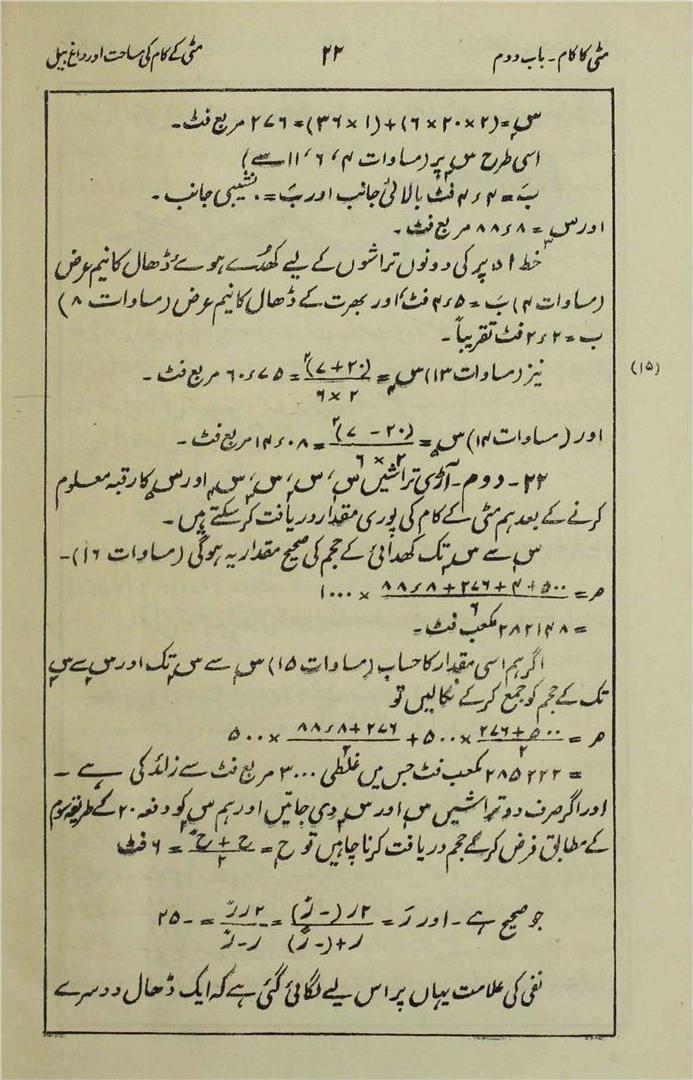 مٹی کا کام۔ باب دوم ۲۲ مٹی کے کام کی مساحت اور داغ بیل
س = (۲ × ۲۰ × ۶) + (۱ × ۳۶) = ۲۷۶ مربع فٹ۔
اسی طرح س پر (مساوات ۴، ۶، ۱۱ سے)
بَ = ۴ء۴ فٹ بالائی جانب اور بَ = ۰ نشیبی جانب۔
اور س = ۸ء۸۸ مربع فٹ۔
خط ا ۵ پر کی دونوں تراشوں کے لیے کھدے ہوے ڈھال کا نیم عرض
(مساوات ۴) بَ = ۵ء۴ فٹ اور بھرت کے ڈھال کا نیم عرض (مساوات ۸)
ب = ۲ء۲ فٹ تقریباً۔
نیز (مساوات ۱۳) س = (۲۰ + ۷)۲ / ۲ × ۶ = ۷۵ء۶۰ مربع فٹ۔ (۱۵)
اور (مساوات ۱۴) س = (۲۰ - ۷)۲ / ۲ × ۶ = ۰۸ء۱۴ مربع فٹ۔
۲۲۔ دوم۔ آڑی تراشیں س، س، س، س اور س کا رقبہ معلوم
کرنے کے بعد ہم مٹی کے کام کی پوری مقدار دریافت کر سکتے ہیں۔
س سے س تک کھدائی کے حجم کی صحیح مقدار یہ ہوگی (مساوات ۱۶)۔
م = ۵۰۰ + ۴ × ۲۷۶ + ۸ء۸۸ / ۶ × ۱۰۰۰
= ۲۸۲۱۴۸ مکعب فٹ۔
اگر ہم اسی مقدار کا حساب (مساوات ۱۵) س سے س تک اور س سے س
تک کے حجم کو جمع کرکے نکالیں تو
م = ۵۰۰ + ۲۷۶ / ۲ × ۵۰۰ + ۲۷۶ + ۸ء۸۸ / ۲ × ۵۰۰
= ۲۸۵۲۲۲ مکعب فٹ جس میں غلطی ۳۰۰۰ مربع فٹ سے زائد کی ہے۔
اور اگر صرف دو تراشیں س اور س دی جائیں اور ہم س کو دفعہ ۲۰ کے طریقہ سوم
کے مطابق فرض کرکے حجم دریافت کرنا چاہیں تو ح = ح + ح / ۲ = ۶ فٹ
جو صحیح ہے۔ اور رَ = ۲ر (- رً) / ر + (- رً) = - ۲ر رً / ر - رً = - ۲۵۰
نفی کی علامت یہاں پر اس لیے لگائی گئی ہے کہ ایک ڈھال دوسرے